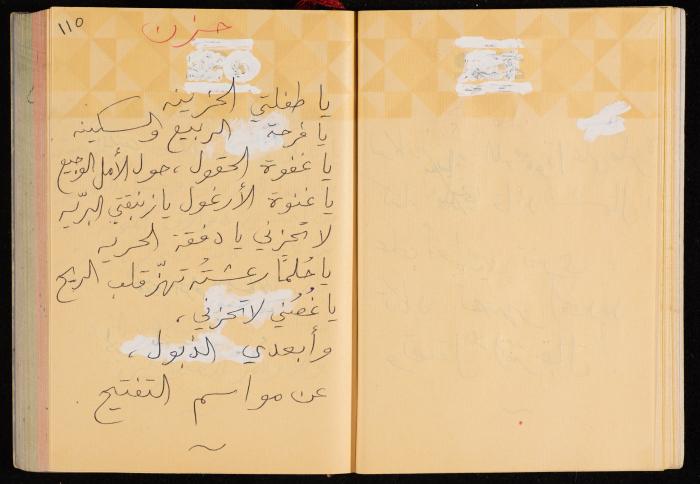 ١١٥
حزن
يا طفلتي الحزينه
يا فرحة الربيع والسكينه
يا غفوة الحقول، حول الأمل الوجيع
يا غنوة الأرغول يا زنبقتي البرّيه
لا تحزني يا دفقة الحريه
يا حُلماً رعشتُه تهزّ قلب الريح
يا غُصُني لا تحزني،
وأبعدي الذبول،
عن مواسم التفتيح